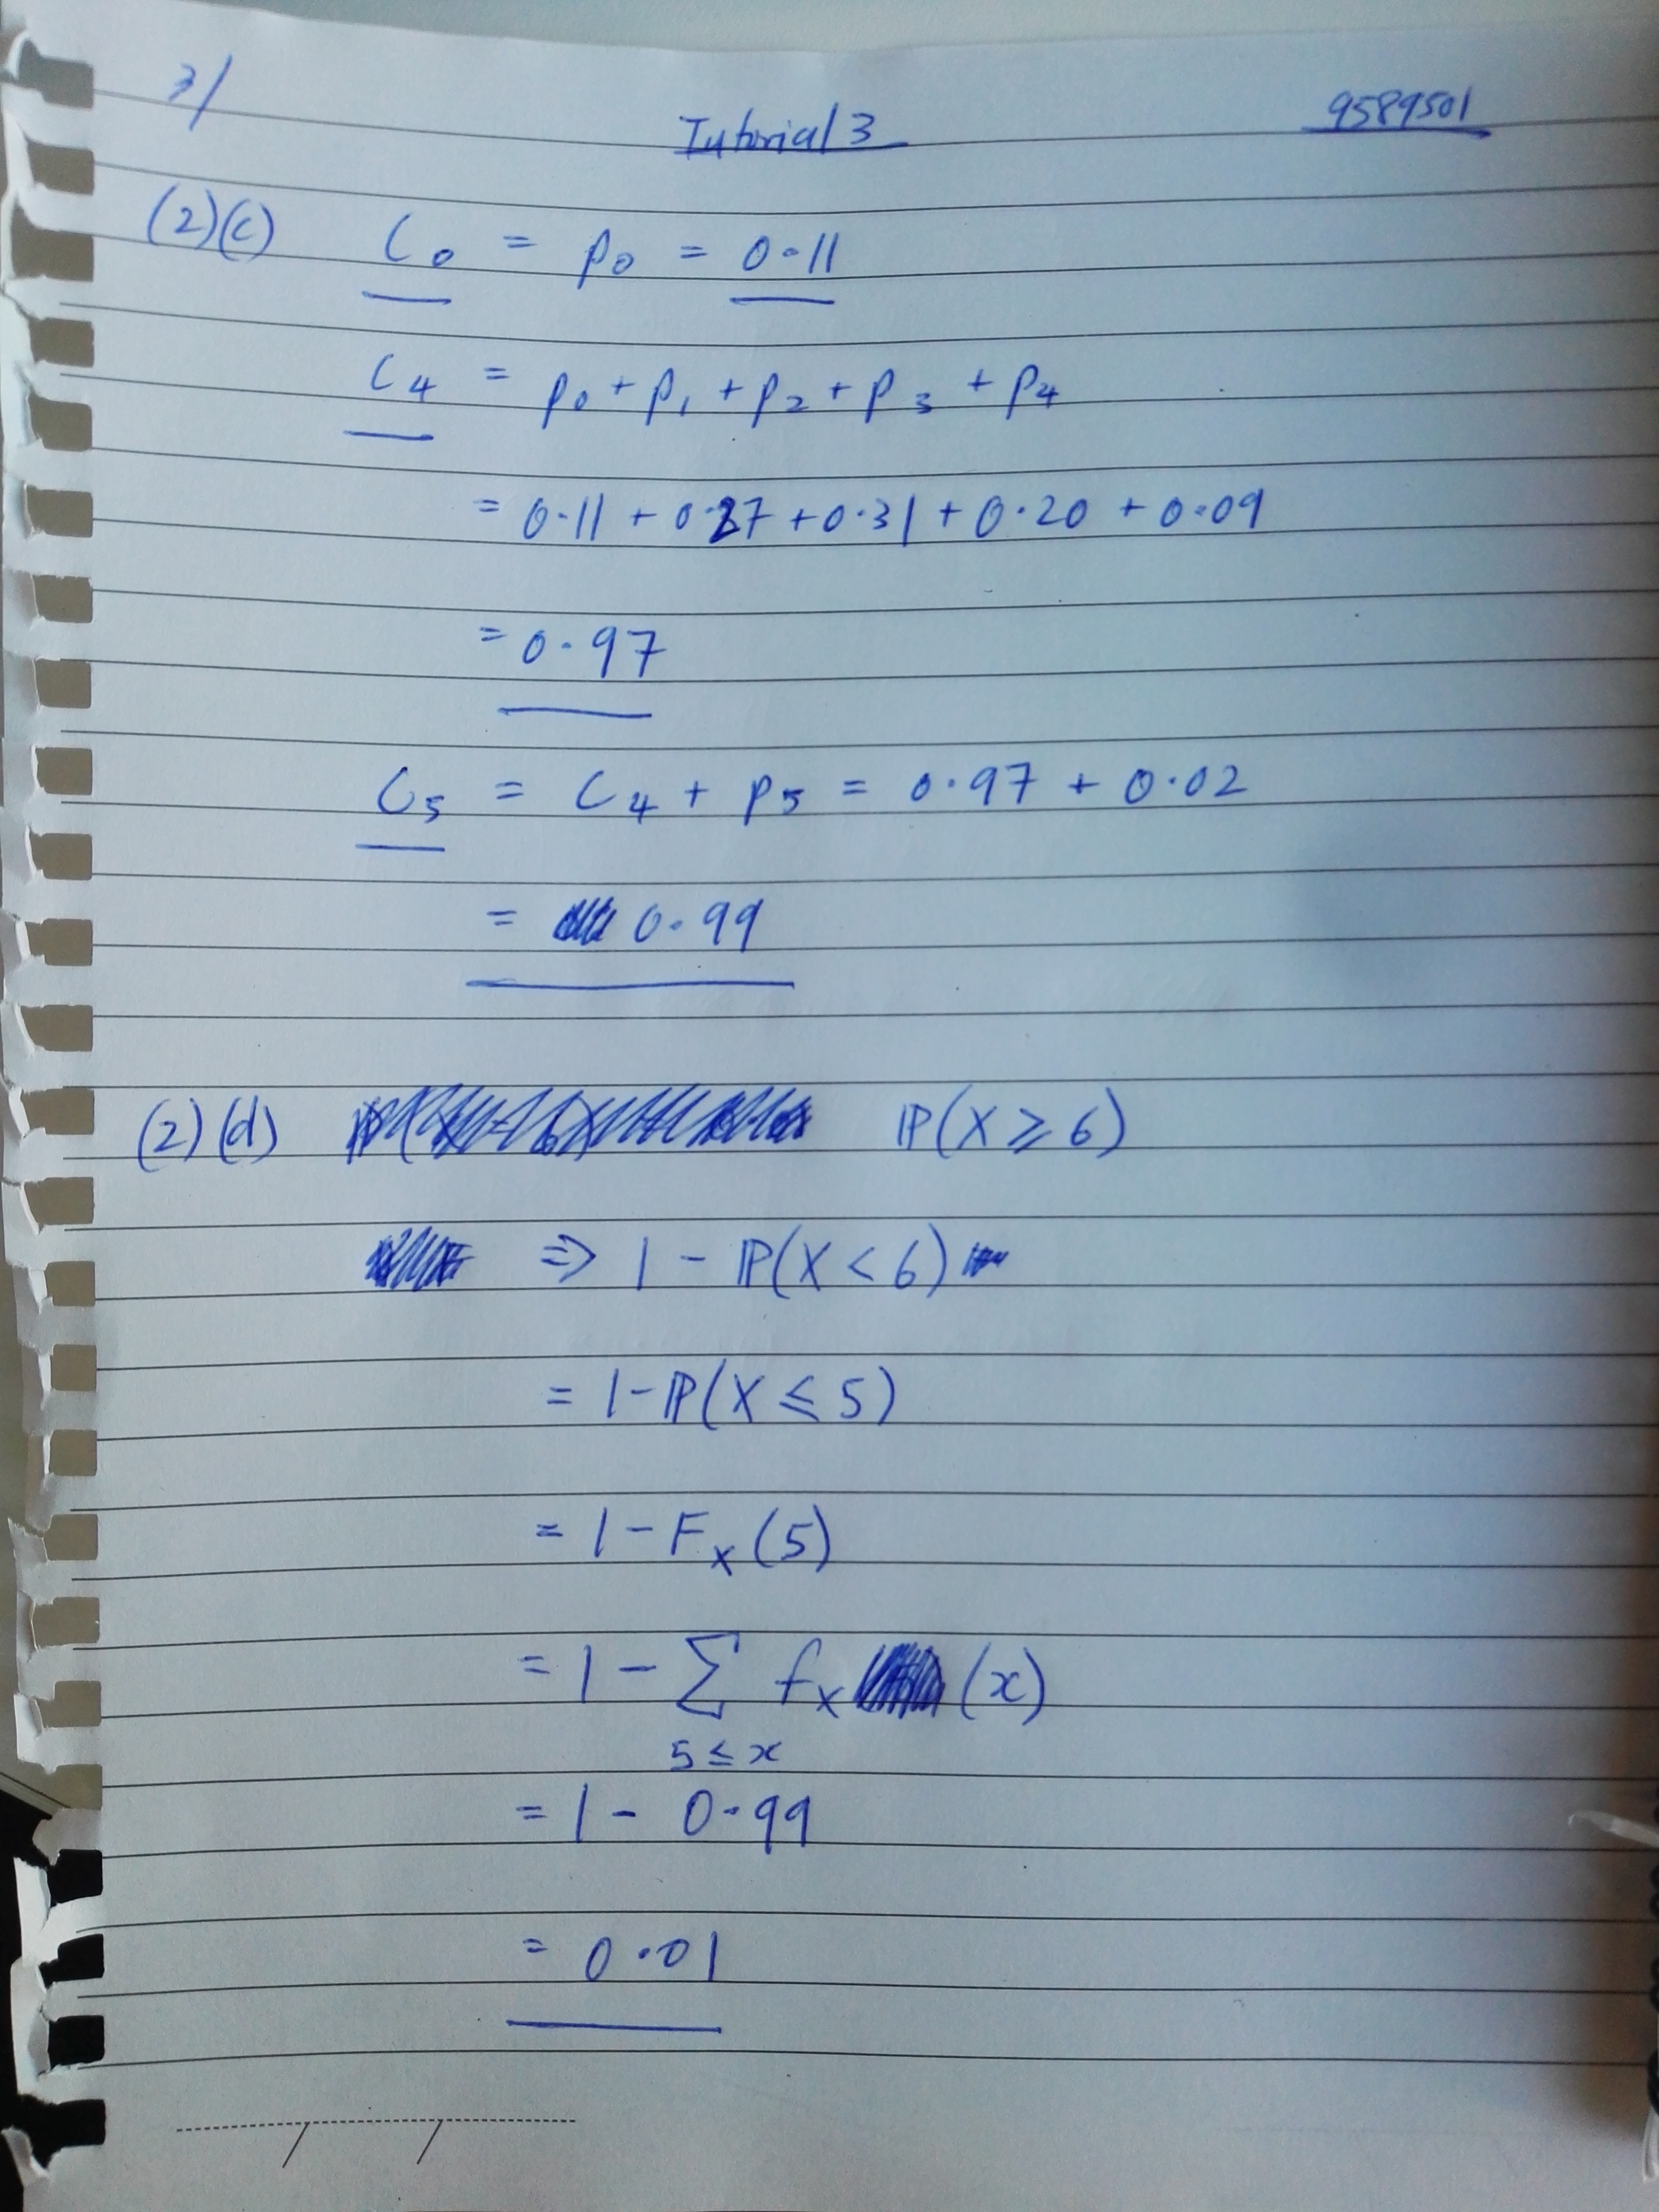 3/
Tutorial 3
9589501
(2)(c) C₀ = p₀ = 0.11
C₄ = p₀ + p₁ + p₂ + p₃ + p₄
= 0.11 + 0.27 + 0.31 + 0.20 + 0.09
= 0.97
C₅ = C₄ + p₅ = 0.97 + 0.02
= 0.99
(2)(d) ℙ(X ⩾ 6)
⇒ 1 - ℙ(X < 6)
= 1 - ℙ(X ⩽ 5)
= 1 - Fₓ(5)
= 1 - ∑ fₓ(x)
5 ≤ x
= 1 - 0.99
= 0.01